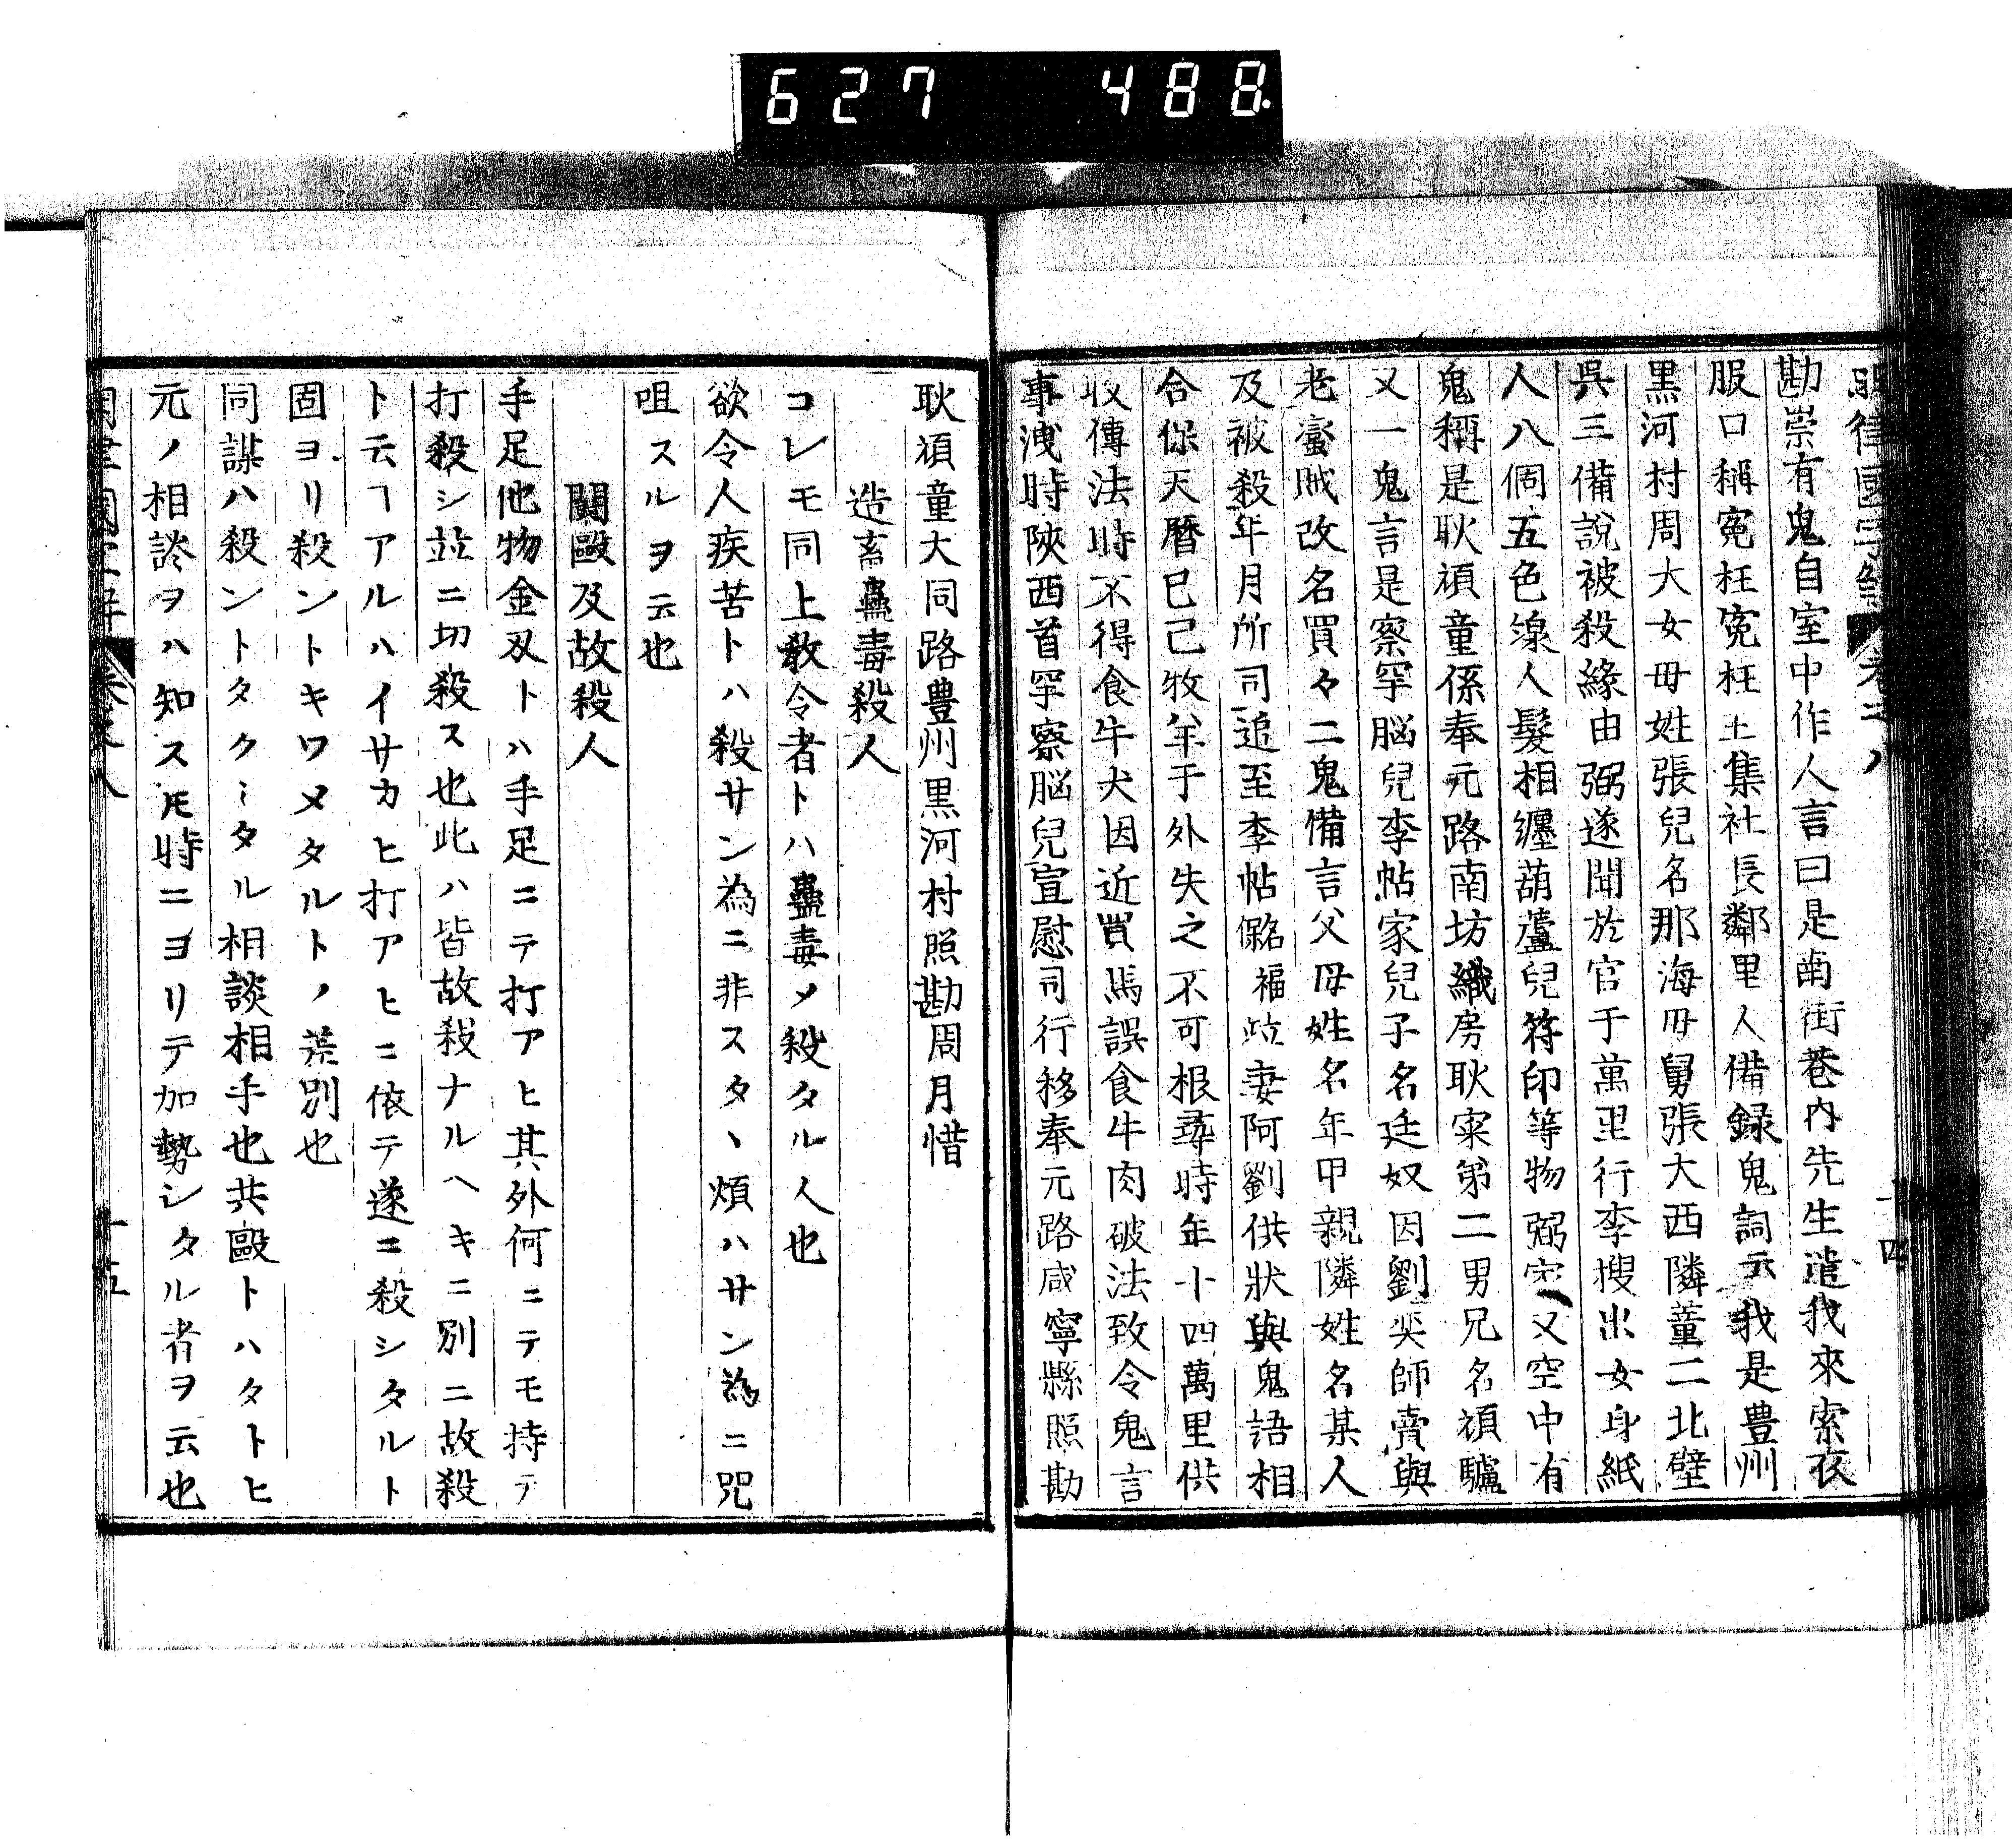 627 488.
勘祟有鬼自室中作人言曰是南街巷内先生遣我來索衣
服口稱冤枉冤枉土集社長鄰里人備録鬼詞云我是豊州
黒河村周大女母姓張兒名那海毋舅張大西隣董二北壁
呉三備說被殺緣由弼遂聞於官于萬里行李搜出女身紙
人八個五色線人髮相纏葫蘆兒符印等物弼家又空中有
鬼稱是耿頑童係奉元路南坊織房耿寀第二男兄名頑驢
又一鬼言是察罕腦兒李帖家兒子名廷奴因劉奕師賣與
老蠻賊改名買々二鬼備言父毋姓名年甲親隣姓名某人
及被殺年月所司追至李帖 福 妻阿劉供狀與鬼語相
合保天曆已己牧羊于外失之不可根尋時年十四萬里供
收傳法時不得食牛犬因近買馬誤食牛肉破法致令鬼言
事洩時陝西首罕察腦兒宣慰司行移奉元路咸寧縣照勘
耿頑童大同路豊州黒河村照勘周月惜
造畜蠱毒殺人
コレモ同上教令者トハ蠱毒メ殺タル人也
欲令人疾苦トハ殺サン為ニ非スタヽ煩ハサン為ニ咒
咀スルヲ云也
鬬毆及故殺人
手足他物金刃トハ手足ニテ打アヒ其外何ニテモ持テ
打殺シ並ニ切殺ス也此ハ皆故殺ナルヘキニ別ニ故殺
ト云ヿアルハイサカヒ打アヒニ依テ遂ニ殺シタルト
固ヨリ殺ントキワメタルトノ差別也
同謀ハ殺ントタクミタル相談相手也共毆トハタトヒ
元ノ相談ヲハ知ス𪜈時ニヨリテ加勢シタル者ヲ云也